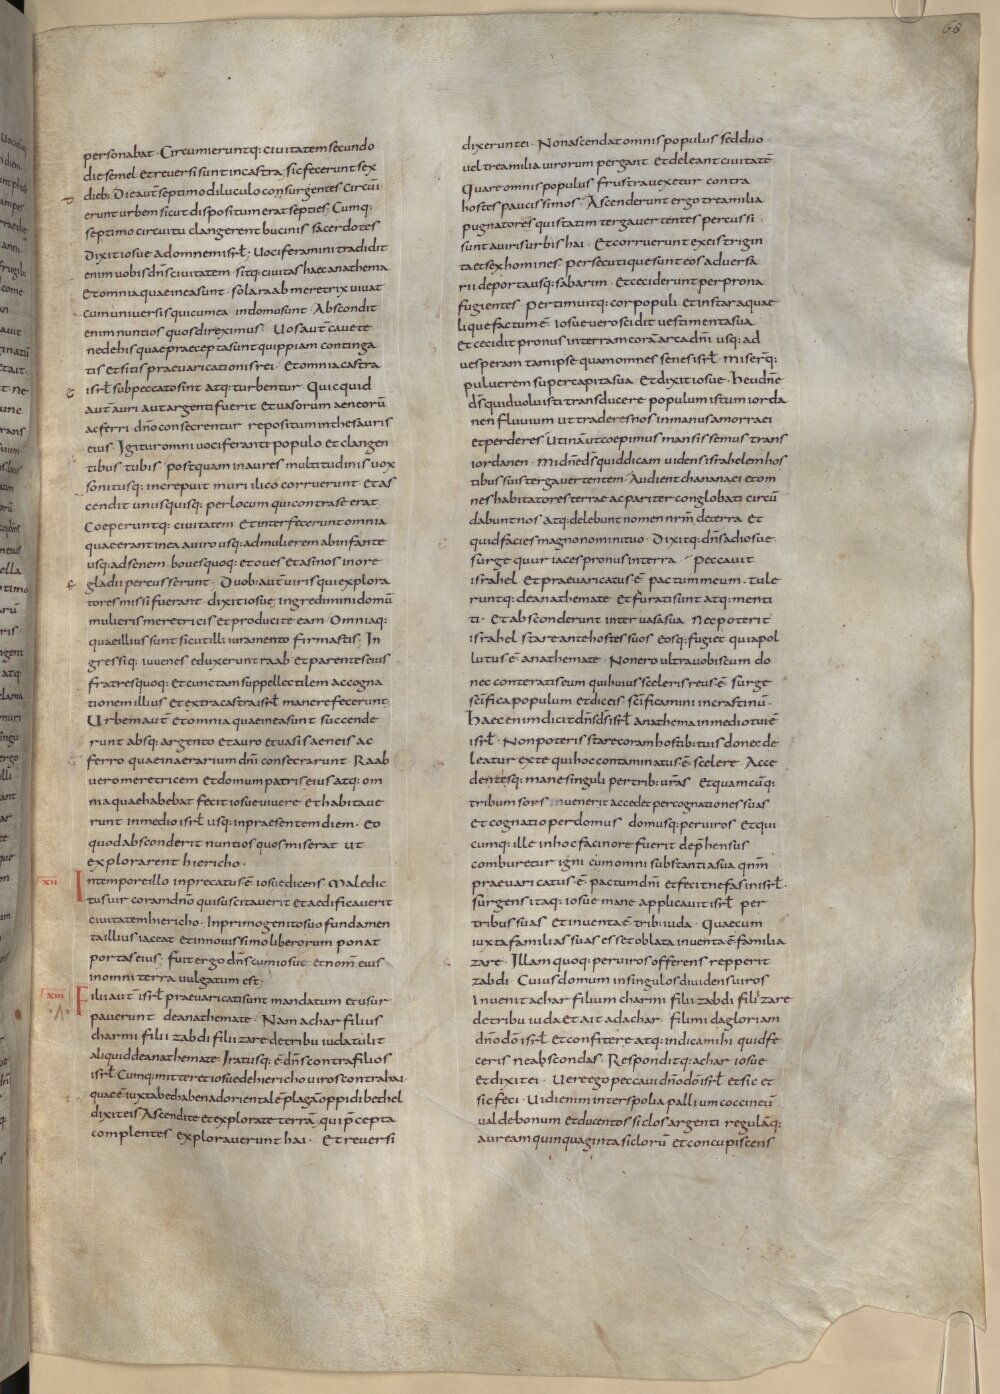 68
personabat · Circumieruntq: civitatem secundo
die semel et reversi sunt in castra, sic fecerunt sex
dieb; Die aut̄ septimo diluculo consurgentes circui
erunt urbem sicut dispositum erat septies; Cumq:
septimo circuitu clangerent bucinis sacerdotes
Dixit iosue ad omnem isrł; Vociferamini tradidit
enim vobis dn̄s civitatem · sitq: civitas haec anathema
Et omnia quae in ea sunt · sola raab meretrix vivat
cum universis qui cum ea in domo sunt · Abscondit
enim nuntios quos direximus; Vos aut̄ cavete
ne de his quae praecepta sunt quippiam continga
tis et sitis praevaricationis rei · Et omnia castra
isrł sub peccato sint atq: turbentur · Quicquid
aut̄ auri aut argenti fuerit et vasorum aeneorū
ac ferri dn̄o consecrentur repositum in thesauris
eius · Igitur omni vociferanti populo et clangen
tibus tubis · postquam in aures multitudinis vox
sonitusq: increpuit muri ilico corruerunt et as
cendit unusquisq: per locum qui contra se erat
Coeperuntq: civitatem et interfecerunt omnia
quae erant in ea a viro usq: ad mulierem ab infante
usq: ad senem · boves quoq: et oves et asinos in ore
gladii percusserunt · Duob: aut̄ viris qui explora
tores missi fuerant · dixit iosue ingredimini domū
mulieris meretricis et producite eam · Omniaq:
quae illius sunt sicut illi iuramento firmastis; In
gressiq: iuvenes eduxerunt raab et parentes eius
fratres quoq: et cunctam suppellectilem ac cogna
tionem illius et extra castra isrł manere fecerunt
Urbem aut̄ et omnia quae in ea sunt succende
runt absq: argento et auro et vasis aeneis ac
ferro quae in aerarium dn̄i consecrarunt · Raab
vero meretricem et domum patris eius atq: om
nia quae habebat fecit iosue vivere et habitave
runt in medio isrł usq: in praesentem diem · Eo
quod absconderit nuntios quos miserat ut
explorarent hiericho ·
xii In tempore illo inprecatus ē iosue dicens · Maledic
tus vir coram dn̄o qui suscitaverit et aedificaverit
civitatem hiericho · In primogenito suo fundamen
ta illius iaceat et in novissimo liberorum ponat
portas eius; fuit ergo dn̄s cum iosue et nom̄ eius
in omni terra vulgatum est;
xiii Filii aut̄ isrł praevaricati sunt mandatum et usur
paverunt de anathemate · Nam achar filius
charmi filii zabdi filii zare de tribu iuda tulit
aliquid de anathemate · Iratusq: ē dn̄s contra filios
isrł Cumq: mitteret iosue de hiericho viros contra hai ·
quae ē iuxta bethaben ad orientalē plagā oppidi bethel
dixit eis Ascendite et explorate terrā; qui p̄cepta
complentes exploraverunt hai · Et reversi
dixerunt ei · Non ascendat omnis populus sed duo
vel trea milia virorum pergant et deleant civitatē
Quare omnis populus frustra vexetur contra
hostes paucissimos · Ascenderunt ergo trea milia
pugnatores qui statim terga vertentes percussi
sunt a viris urbis hai · Et corruerunt ex eis trigin
ta et sex homines persecutique sunt eos adversa
rii de porta usq: sabarim · Et ceciderunt per prona
fugientes · Pertimuitq: cor populi et instar aquae
liquefactum ē · iosue vero scidit vestimenta sua
Et cecidit pronus in terram corā arca dn̄i usq: ad
vesperam tam ipse quam omnes senes isrł · Miserq:
pulverem super capita sua · Et dixit iosue · Heu dn̄e
d̄s quid voluisti transducere populum istum iorda
nen fluvium ut traderes nos in manus amorraei
et perderes Utinā ut coepimus mansissemus trans
iordanen · Mi dn̄e d̄s quid dicam videns israhelem hos
tibus suis terga vertentem · Audient chananaei et om
nes habitatores terrae ac pariter conglobati circū
dabunt nos atq: delebunt nomen nr̄m de terra Et
quid facies magno nomini tuo · Dixitq: dn̄s ad iosue ·
surge quur iaces pronus in terra · Peccavit
israhel et praevaricatus ē pactum meum · tule
runtq: de anathemate et furati sunt atq: menti
ti · Et absconderunt inter vasa sua nec poterit
israhel stare ante hostes suos eosq: fugiet quia pol
lutus ē anathemate · Non ero ultra vobiscum do
nec conteratis eum qui huius sceleris reus ē · surge
scīfica populum et dic eis · scīficamini in crastinū
Haec enim dicit dn̄s d̄s isrł anathema in medio tui ē
isrł · Non poteris stare coram hostib: tuis donec de
leatur ex te qui hoc contaminatus ē scelere · Acce
detesq: mane singuli per trib: vr̄as · Et quamcūq:
tribum sors invenerit accedet per cognationes suas
Et cognatio per domus domusq: per viros · Et qui
cumq: ille in hoc facinore fuerit dep̄hensus
comburetur igni cum omni substantia sua qnm̄
praevaricatus ē pactum dn̄i et fecit nefas in isrł ·
surgens itaq: iosue mane applicavit isrł per
tribus suas et inventa ē trib: iuda · Quae cum
iuxta familias suas esset oblata inventa ē familia
zare · Illam quoq: per viros offerens repperit
zabdi · Cuius domum in singulos dividens viros
Invenit achar filium charmi filii zabdi filii zare
de tribu iuda et ait ad achar · fili mi da gloriam
dn̄o dō isrł et confitere atq: indica mihi quid fe
ceris ne abscondas · Responditq: achar iosue
et dixit ei · Vere ego peccavi dn̄o dō isrł et sic et
sic feci · Vidi enim inter spolia pallium coccineū
valde bonum et ducentos siclos argenti regulāq:
auream quinquaginta siclorū et concupiscens